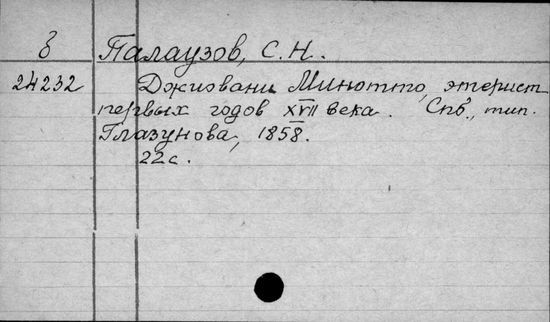 Палаузов, С.Н.
24232 Джиовани Минотто, этерист
первых годов XVII века. Спб., тип.
Глазунова, 1858.
22 с.